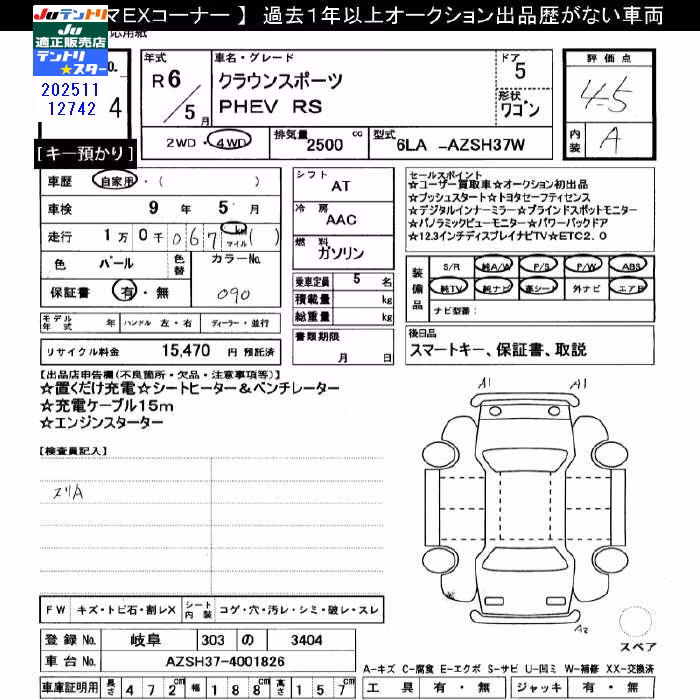 マEXコーナー 】 過去１年以上オークション出品歴がない車両
Juテントリ
Ju
適正販売店
テントリ
☆スター
応用紙
202511
12742
4
【キー預かり】
年式
R 6 / 5 月
車名・グレード
クラウンスポーツ
PHEV RS
ドア
5
形状
ワゴン
評価点
4.5
内装
A
2WD・4WD
排気量 2500 cc
型式 6LA -AZSH37W
車歴 自家用・( )
車検 9 年 5 月
走行 1 万 0 千 067 km マイル ( )
色 パール
色替
カラーNo.
090
保証書 有・無
シフト
AT
冷房
AAC
燃料
ガソリン
乗車定員 5 名
積載量 kg
総重量 kg
書類期限
月 日
セールスポイント
☆ユーザー買取車☆オークション初出品
☆プッシュスタート☆トヨタセーフティセンス
☆デジタルインナーミラー☆ブラインドスポットモニター
☆パノラミックビューモニター☆パワーバックドア
☆12.3インチディスプレイナビTV☆ETC2.0
装備品
S/R 純A/W P/S P/W ABS
純TV 純ナビ 革シート 外ナビ エアB
ナビ型番：
モデル年式 年 ハンドル 左・右 ディーラー・並行
リサイクル料金 15,470 円 預託済
後日品
スマートキー、保証書、取説
【出品店申告欄(不良箇所・欠品・注意事項等)】
☆置くだけ充電☆シートヒーター＆ベンチレーター
☆充電ケーブル15m
☆エンジンスターター
【検査員記入】
スリA
A1 A1
A2
スペア
FW キズ・トビ石・割レX
シート内装 コゲ・穴・汚レ・シミ・破レ・スレ
登録 No. 岐阜 303 の 3404
車台 No. AZSH37-4001826
車庫証明用 長さ 472 cm 幅 188 cm 高さ 157 cm
A-キズ C-腐食 E-エクボ S-サビ U-凹ミ W-補修 XX-交換済
工具 有・無 ジャッキ 有・無